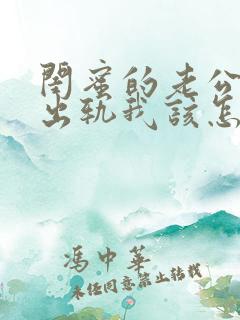 閨蜜的老公
出轨我該怎
馮中華
未经同意禁止转载